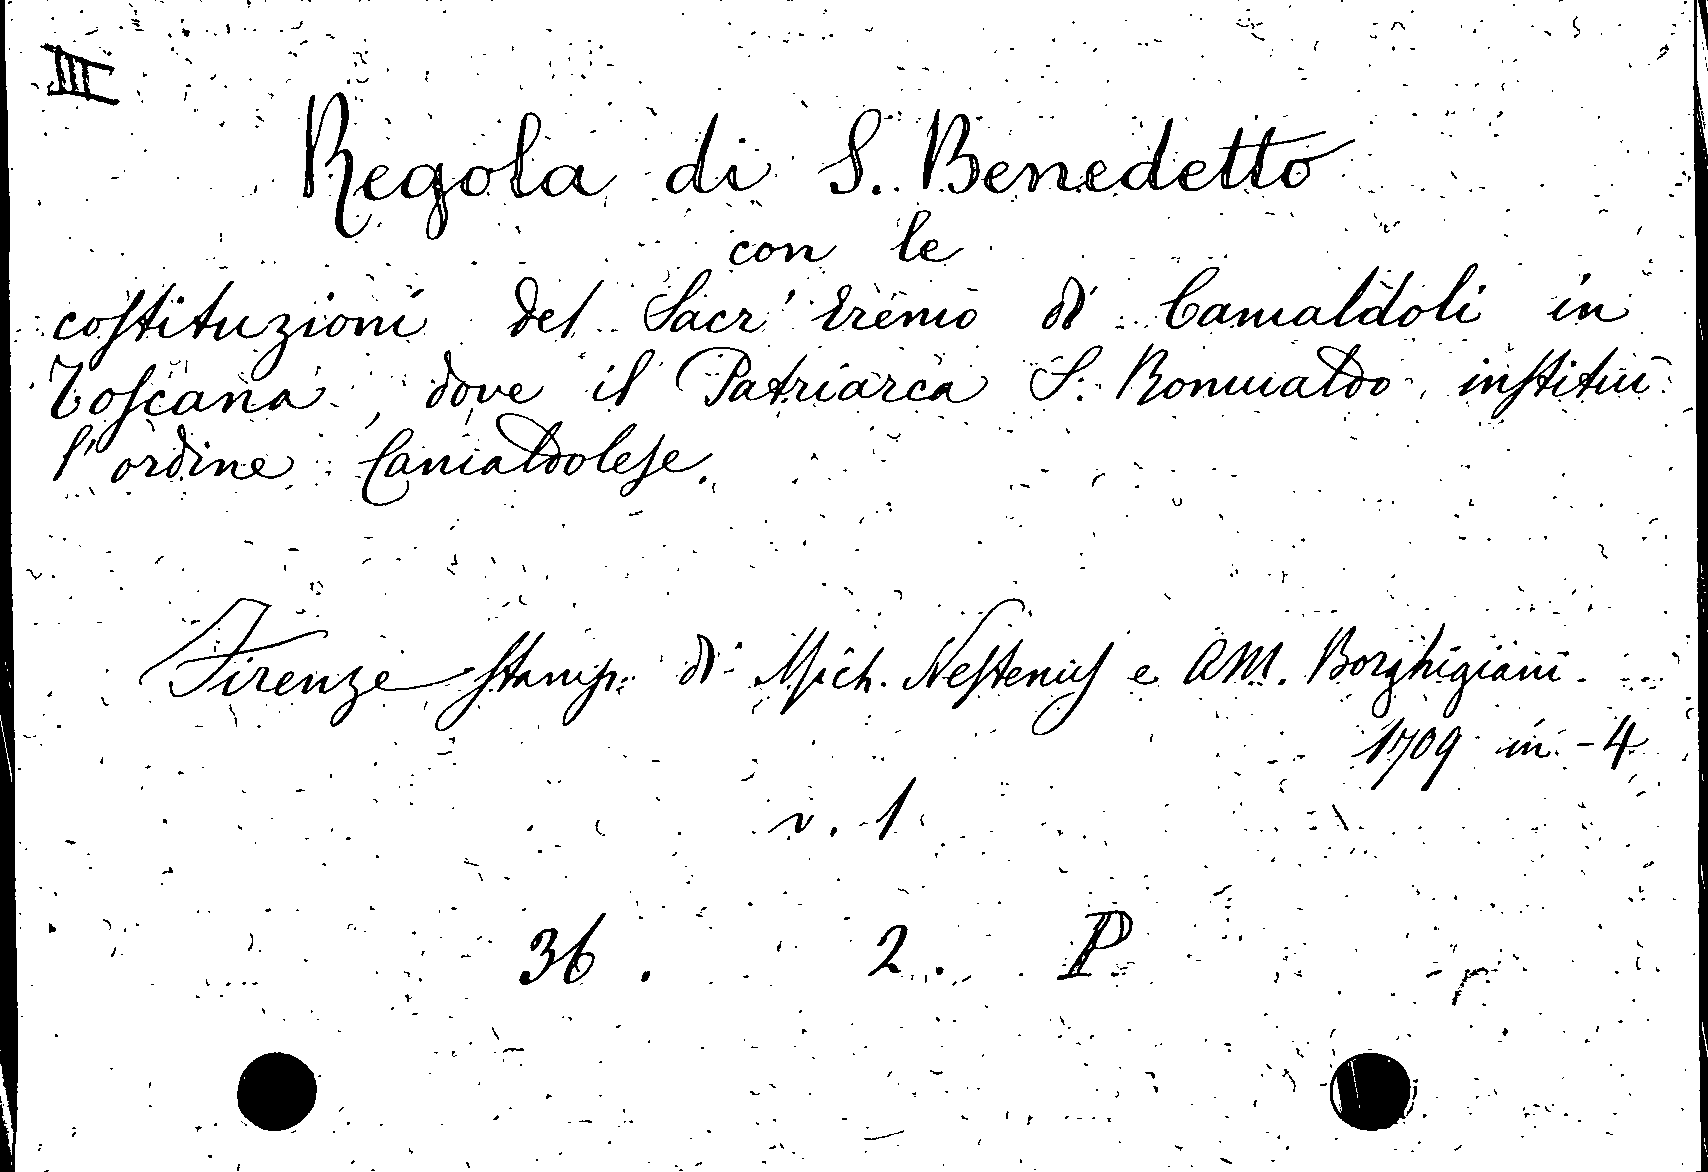 III
Regola di S. Benedetto
con le
costituzioni del Sacr' Eremo di Camaldoli in
Toscana, dove il Patriarca S. Romualdo instituì
l'ordine Camaldolese.
Firenze stamp. di Mich. Nestenus e AM. Borghigiani
1709 in-4
v. 1
36. 2. P